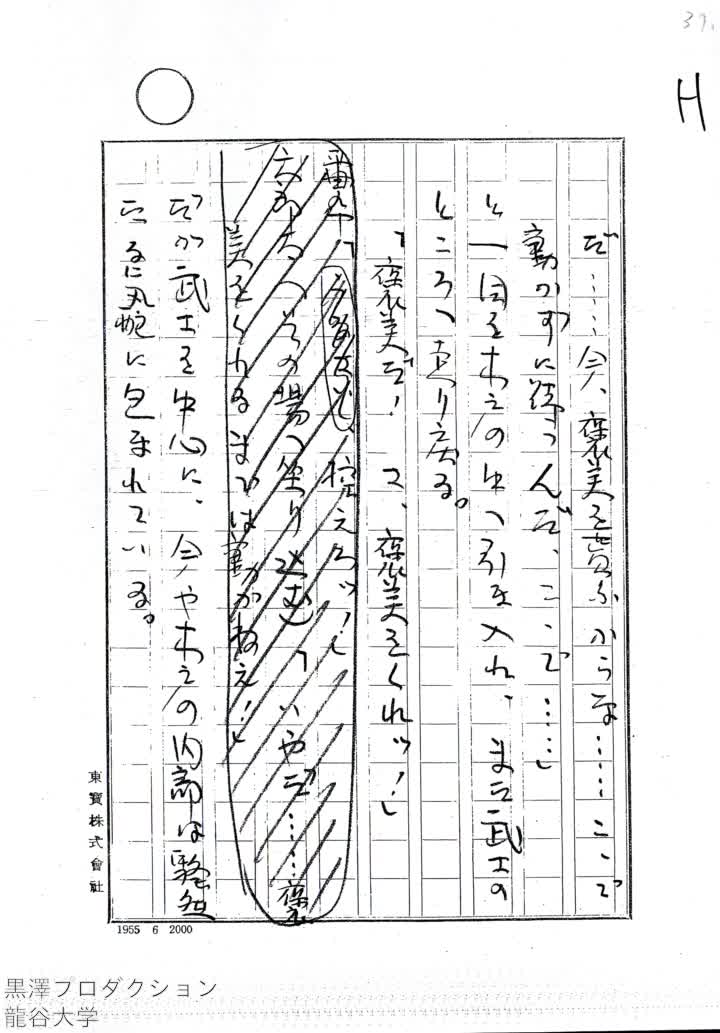 37.
H
だ……今、褒美を貰ふからな……こゝで
動かずに待つんだ、こゝで……」
と一同を木立の中へ引き入れ、また武士の
ところへ走り戻る。
「褒美だ! コ、褒美をくれッ!」
控えろッ!」
六郎太(その場へ坐り込む)「いやだ……褒
美をくれるまでは動かねえ!」
だが武士を中心に、今や木立の内部は騒然
たる に包まれている。
東寶株式會社
1955 6 2000
黒澤プロダクション
龍谷大学